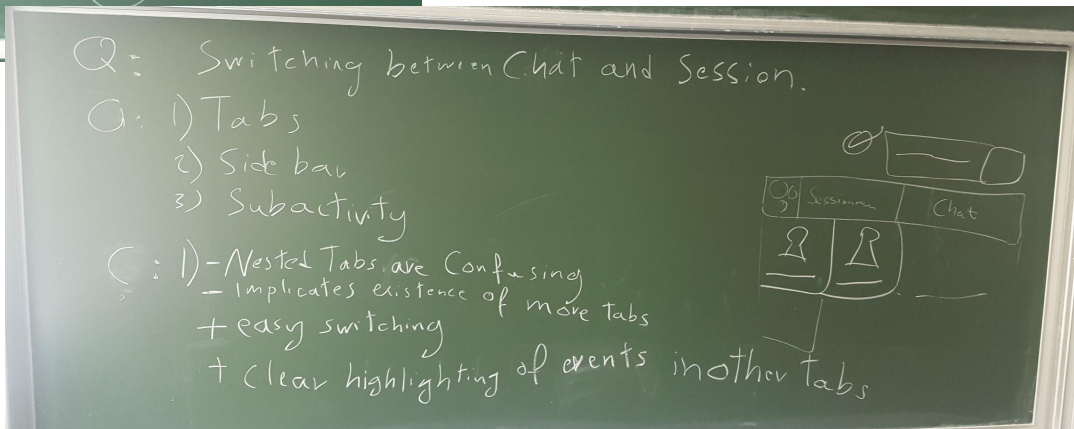 Q: Switching between Chat and Session.
O: 1) Tabs
2) Side bar
3) Subactivity
C: 1) - Nested Tabs are Confusing
- Implicates existence of more tabs
+ easy switching
+ clear highlighting of events in other tabs
Chat